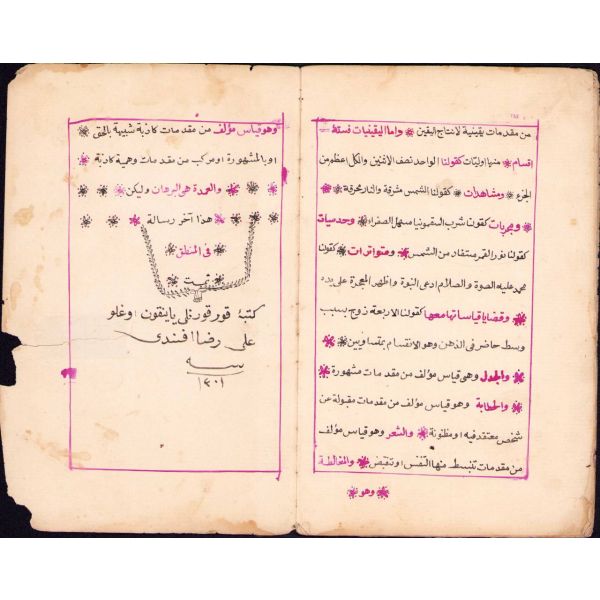 من مقدمات يقينية لانتاج اليقين واما اليقينيات فستة
اقسام منها اوليات كقولنا الواحد نصف الاثنين والكل اعظم من
الجزء ومشاهدات كقولنا الشمس مشرقة والنار محرقة
ومجربات كقولنا شرب السقمونيا مسهل الصفراء وحدسيات
كقولنا نور القمر مستفاد من الشمس ومتواترات كقولنا
محمد عليه الصلوة والسلام ادعى النبوة واظهر المعجزة على يده
وقضايا قياساتها معها كقولنا الاربعة زوج بسبب
وسط حاضر فى الذهن وهو الانقسام بمتساويين
والجدل وهى قياس مؤلف من مقدمات مشهورة
والخطابة وهو قياس مؤلف من مقدمات مقبولة عن
شخص معتقد فيه او مظنونة والشعر وهو قياس مؤلف
من مقدمات تنبسط منها النفس او تنقبض والمغالطة
وهو
وهو قياس مؤلف من مقدمات كاذبة شبيهة بالحق
او بالمشهورة او مركب من مقدمات وهمية كاذبة
والعمدة هى البرهان وليكن
هذا آخر رسالة
فى المنطق
تمت
كتبه قور قورزلى يانقون اوغلو
على رضا افندى
سنه
١٣٠١